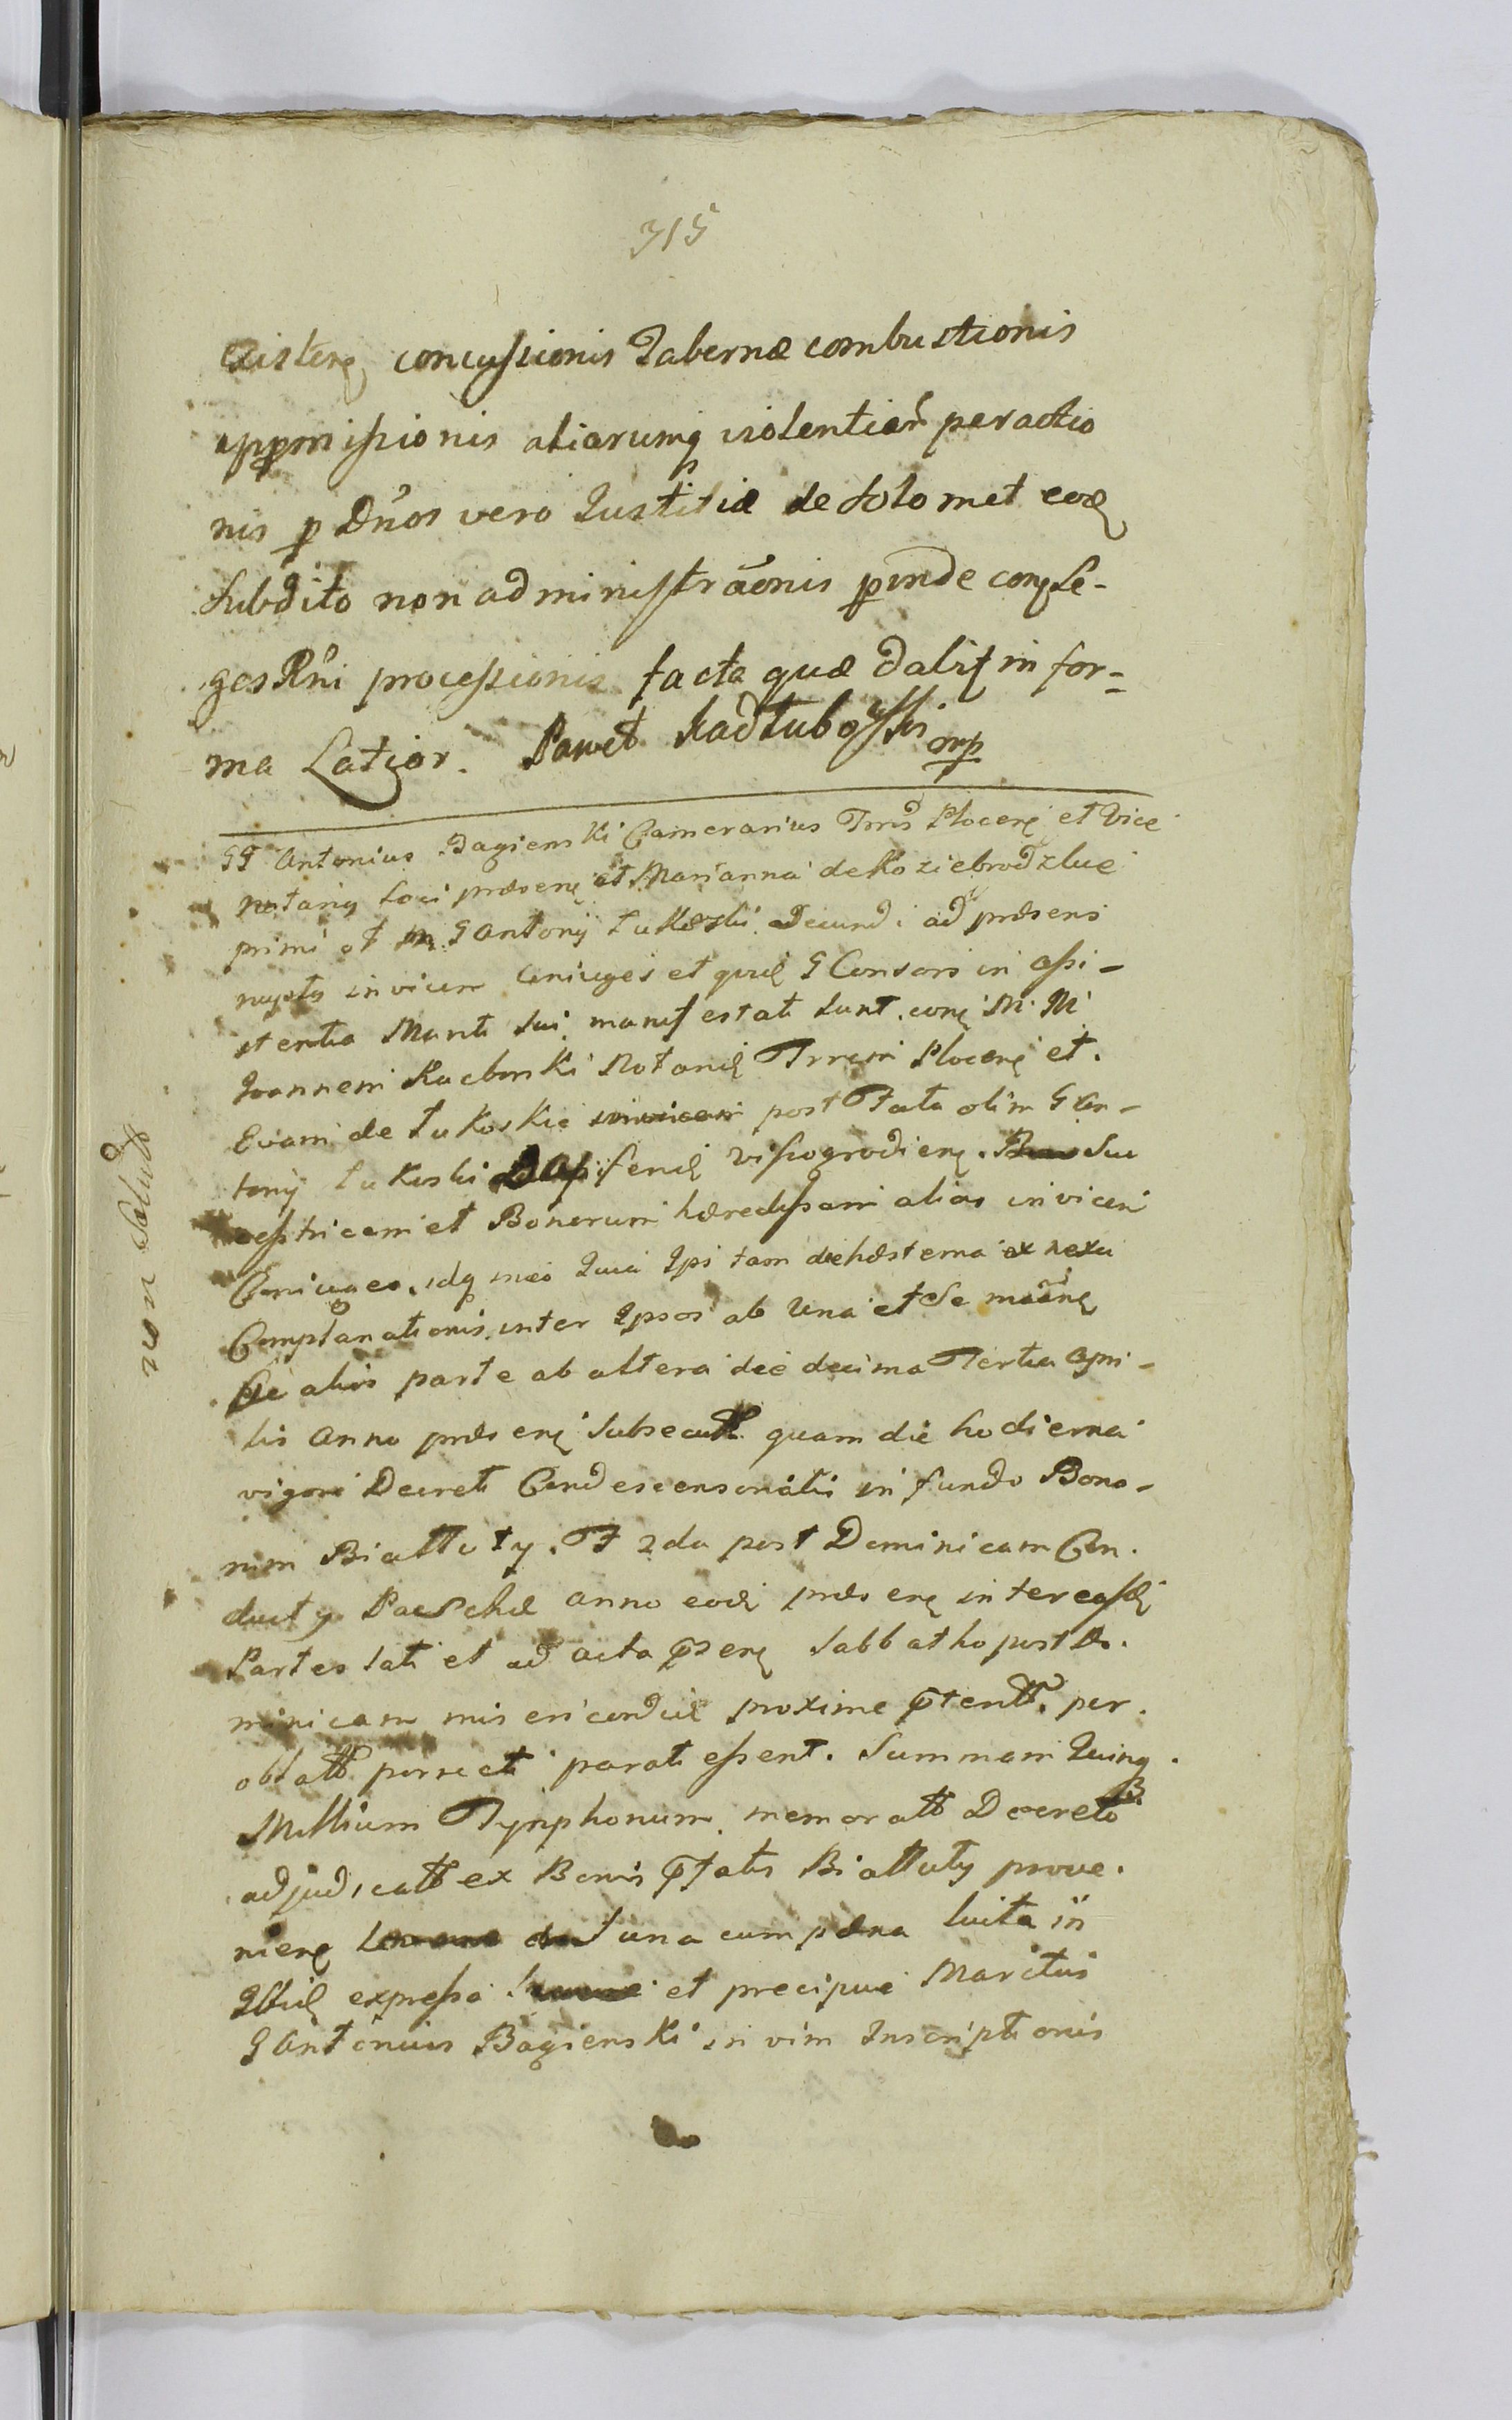 315
existenę concussionis Tabernæ combustionis
appromissionis aliarumq violentiar peractio
nis p Dnos vero Justitiæ de Solomet eoæ
Subdito non administraonis pinde conq Le-
ges Rni processionis facta quæ dabit in for=
ma Latior. Paweł Kadłubowski mp
GG Antonius Bagienski Camerarius Trris Plocenę et Vice
notarius Loci præsenę et Marianna de Koziebrodzkie
primi et M. G Antonij Łukoski Secundi ad præsens
nuptæ invicem Coniuges et quidę G Consors in assi-
stentia Mariti sui manifestati sunt. conę M. M
Joannem Raciborski Notariuę Trrem Plocenę et.
Evam de Łukoskie post Fata olim G An-
tonij Łukoski Dapiferidę Vissogrodienę. Suc
cestricem et Bonorum hæredissam alias invicem
Coniuges. idq ineo Quia Ipsi tam die hesterna ex nexu
Complanationis inter Ipsos ab Una et Se maanę
parte ab altera die decima Tertia Apri-
lis Anno præsenę Subsecutæ quam die hodierna
vigore Decreti Condescensorialis in fundo Bono-
rum Białłuty. F 2da post Dominicam Con.
ductus Paschæ anno eodę præsenę intercassę
Partes lati et ad acta pzenę Sabbatho post Do.
minicam misericordiæ proxime pteritt. per.
oblatt porrecti parati essent. Summam Quinq.
Millium Tynphonum memoratt Decreto
adjudicatt ex Bonis pfatis Białłuty prove.
nienę una cum pæna luita in
Ibidę expressa et precipue Maritus
G Antonius Bagienski in vim Inscriptionis
non Solud